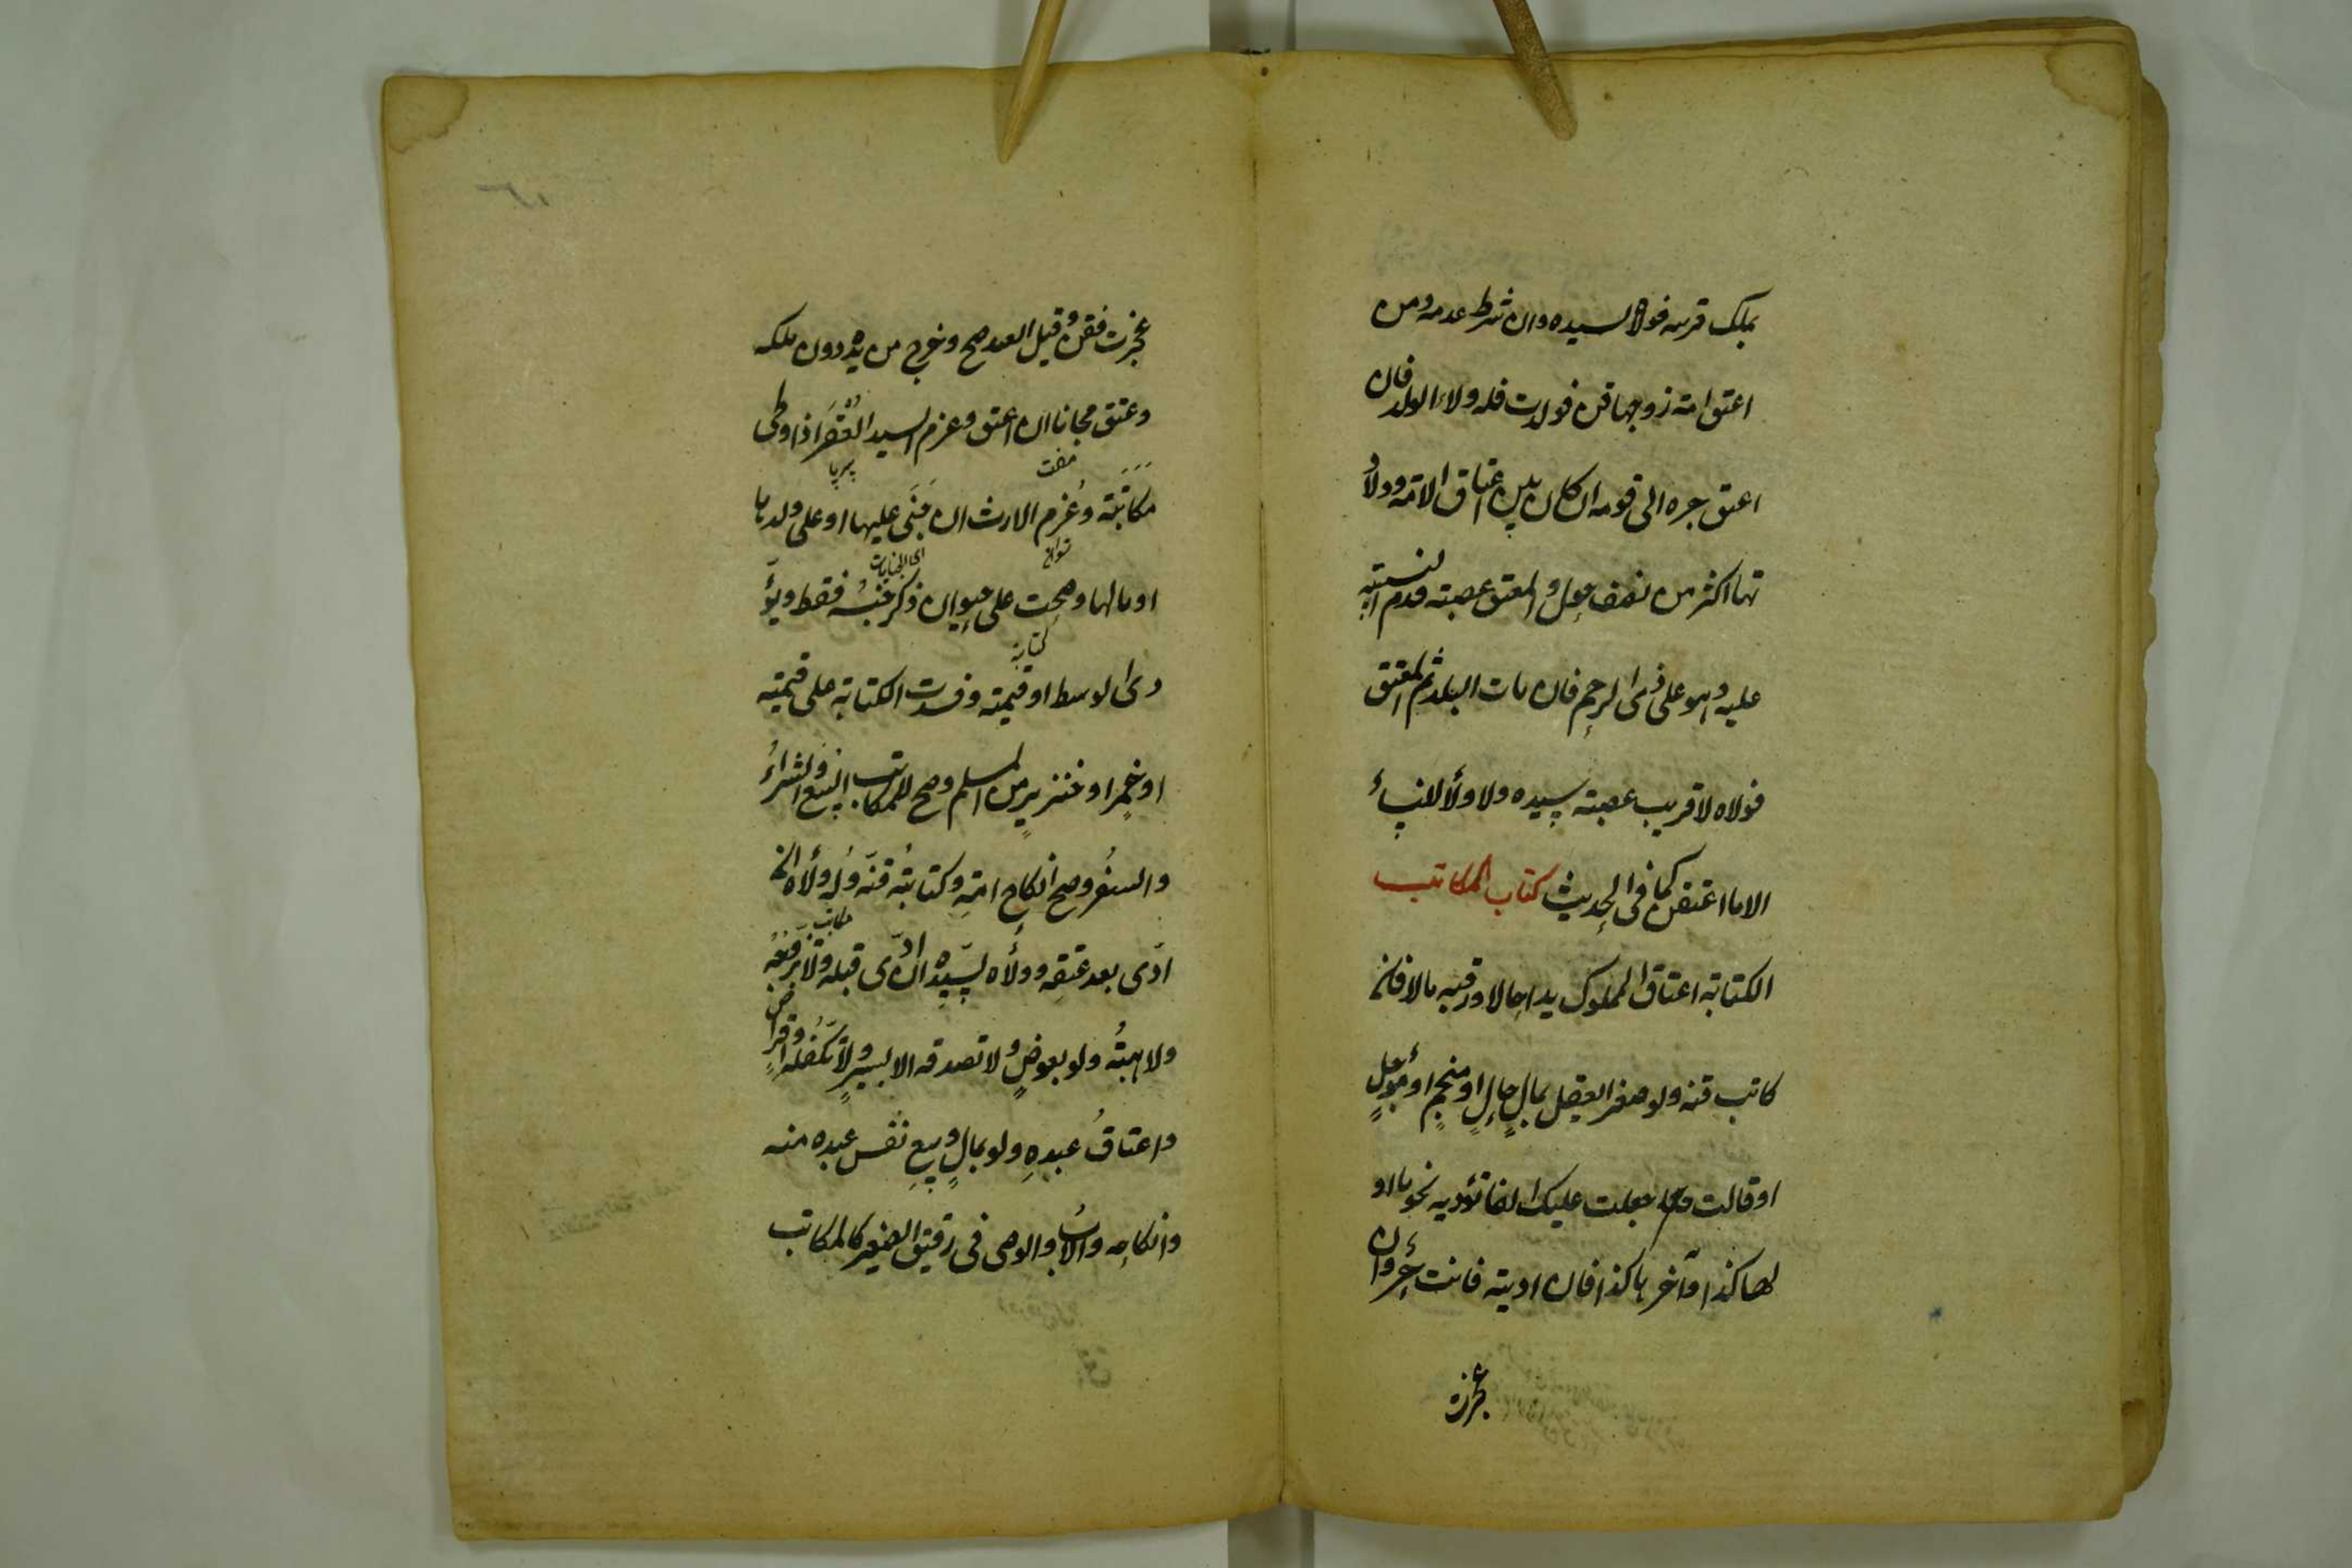 بملك قريبه فولاه لسيده وان شرط عدمه ومن
اعتق امته زوجها قن فولدت فله ولاء الولد فان
اعتق جره الى قومه ان كان بين اعتاق الامة وولاد
تها اكثر من نصف حول والمعتق عصبته قدم النسبية
عليه وهو على ذى الرحم فان مات السيد ثم المعتق
فولاه لاقريب عصبته سيده ولا ولاء للنساء
الا ما اعتقن كما فى الحديث كتاب المكاتب
الكتابة اعتاق المملوك يدا حالا ورقبة مالا فان
كاتب قنه ولو صغيرا يعقل بمال حال او منجم او مؤجل
او قال جعلت عليك الفا تؤديه نجوما او
لها كذا وآخرها كذا فان اديته فانت حر وان
عجزت
عجزت فقن وقبل العبد صح وخرج من يده دون ملكه
وعتق مجانا ان اعتق وغرم السيد العقر اذا وطى
مفت
مكاتبته وغرم الارش ان جنى عليها او على ولدها
اى الجنايات
او مالها وصحت على حيوان ذكر جنسه فقط ويؤ
كتابة
دى الوسط او قيمته وفسدت الكتابة على قيمته
او خمر او خنزير من المسلم وصح للمكاتب البيع والشراء
والسفر وصح انكاح امته وكتابة قنه وله ولاه ان
مكاتب
ادى بعد عتقه وولاه لسيده ان ادى قبله ولا تزوجه
ولا هبته ولو بعوض ولا تصدقه الا بيسير ولا تكفله واقراض
واعتاق عبده ولو بمال وبيع نفس عبده منه
وانكاحه والاب والوصى فى رقيق الصغير كالمكاتب